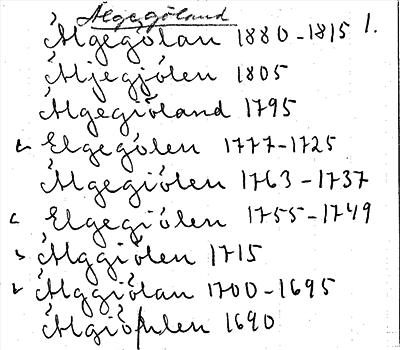 Älgegöland
Älgegölan 1880-1815 1.
Äljegjölen 1805
Älgegiöland 1795
Elgegölen 1777-1725
Älgegiölen 1763-1737
Elgegiölen 1755-1749
Älggiölen 1715
Älggiölan 1700-1695
Älgiö 1690